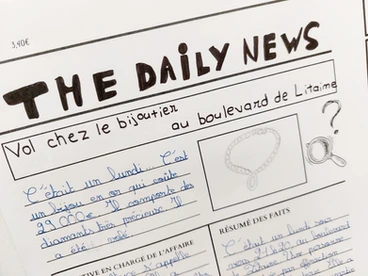 3,40€
THE DAILY NEWS
Vol chez le bijoutier
au boulevard de Litaime
?
C'était un lundi... C'est
un bijou en or qui coûte
29 000€. Il comporte des
diamants très précieux. Il
a été
RÉSUMÉ DES FAITS
C'était un lundi soir
TIVE EN CHARGE DE L'AFFAIRE
s'appelle
personne